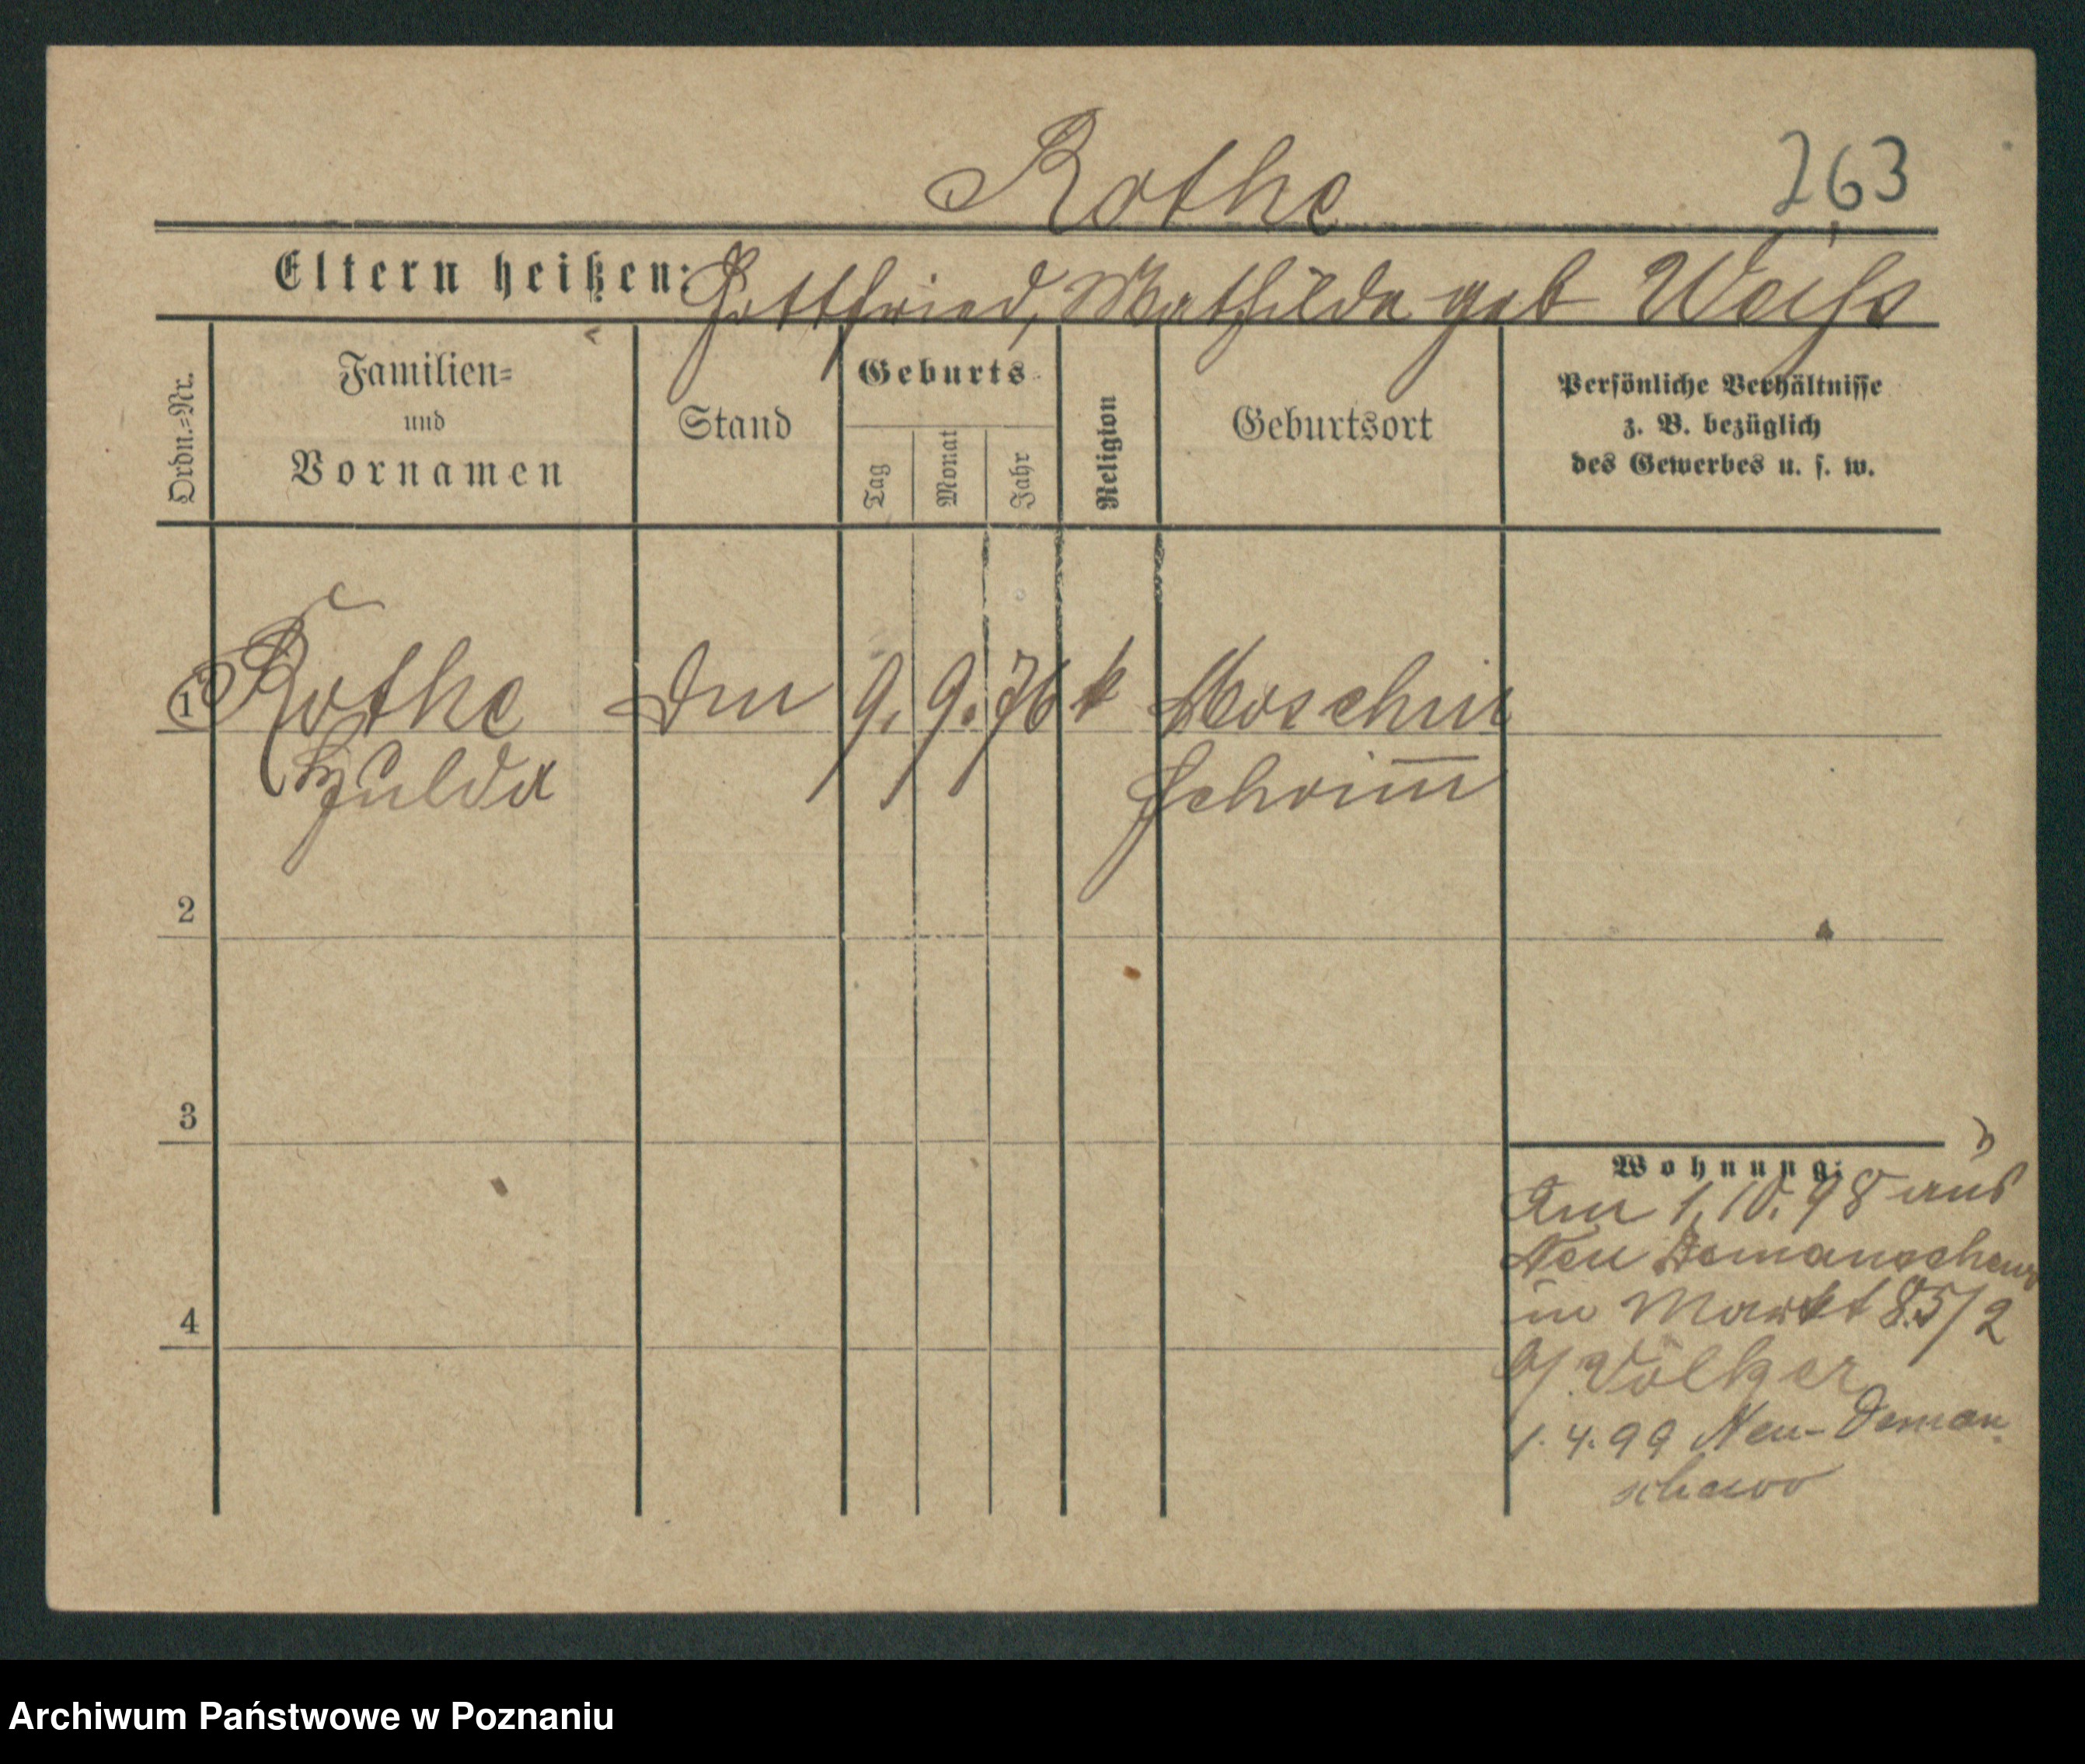 Rothe 263
Eltern heißen: Gottfried, Mathilde geb Weiss
Ordn.-Nr.
Familien-
und
Vornamen
Stand
Geburts-
Tag
Monat
Jahr
Religion
Geburtsort
Persönliche Verhältnisse
z. B. bezüglich
des Gewerbes u. s. w.
1 Rothe 9. 9. 76 k Moschin
Hulda Schrimm
2
3
4
Wohnung:
Am 1.10.98 aus
Neu Demanschewo
in Markt 85/2
b/ Völker
1.4.99 Neu-Deman
schewo
Archiwum Państwowe w Poznaniu